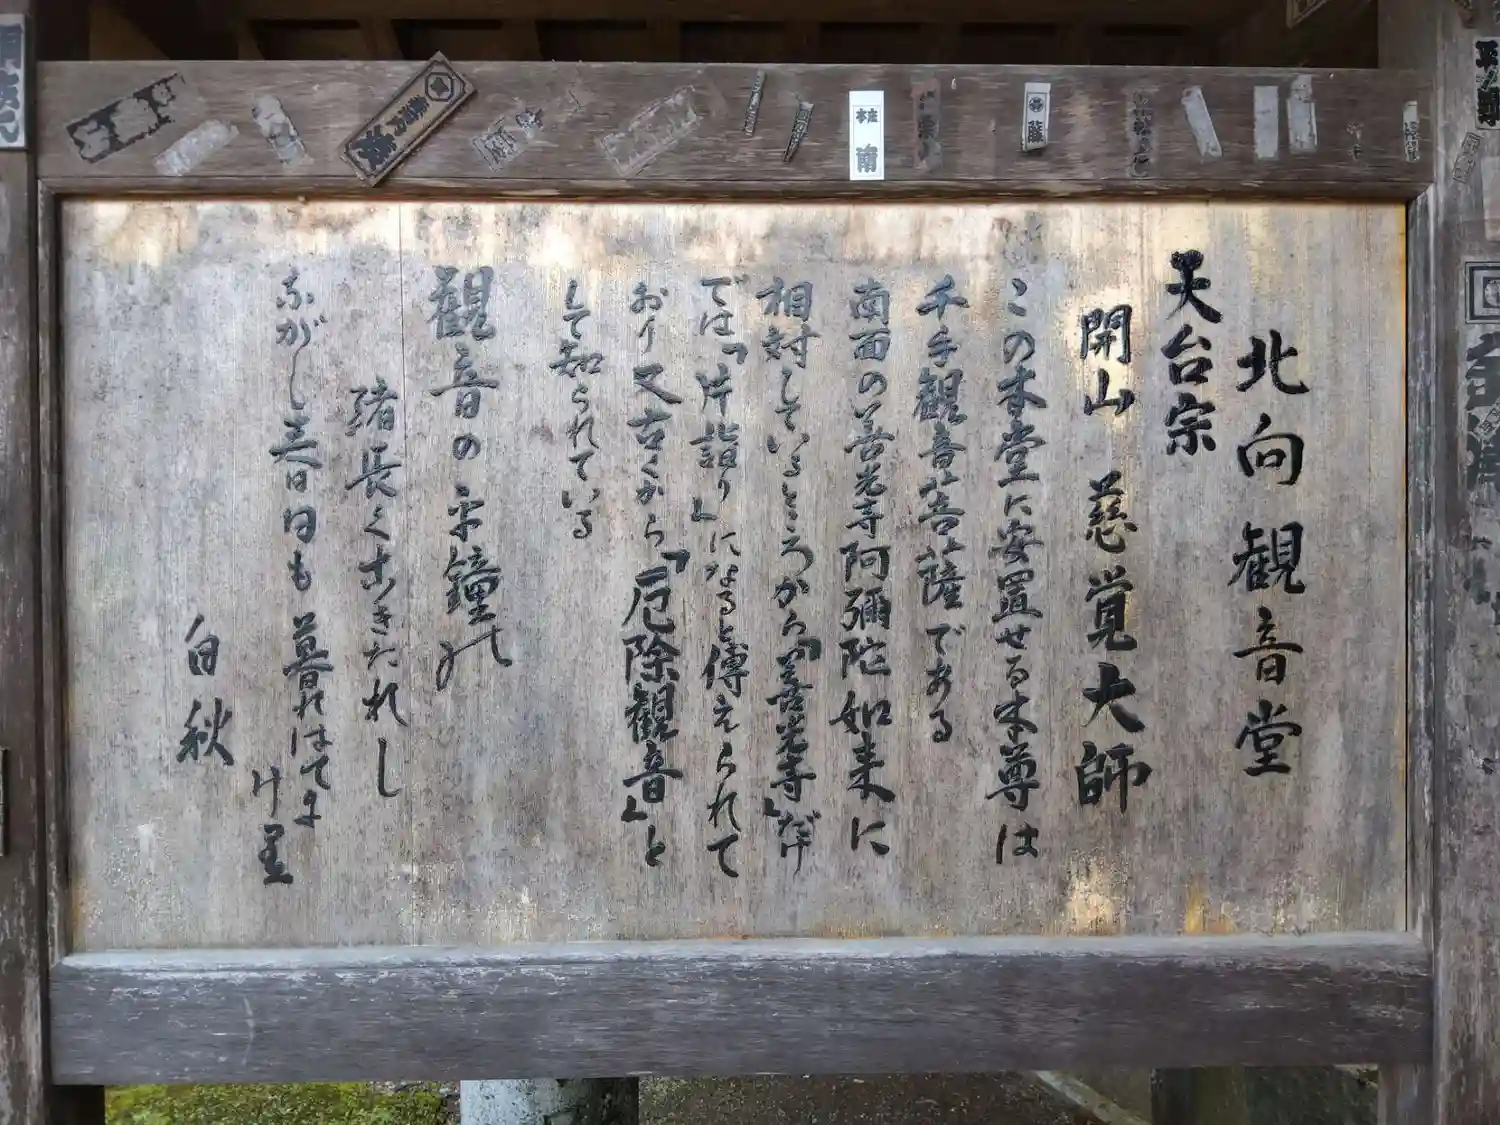 北向観音堂
天台宗
開山 慈覚大師
この本堂に安置せる本尊は
千手観音菩薩である
南面の善光寺阿彌陀如来に
相対しているところから「善光寺」だけ
では「片詣り」になると傳えられて
おり又古くから「厄除観音」と
して知られている
観音の鐘の
緒長くきたれし
ながし春日も暮れはてに
けり
白秋